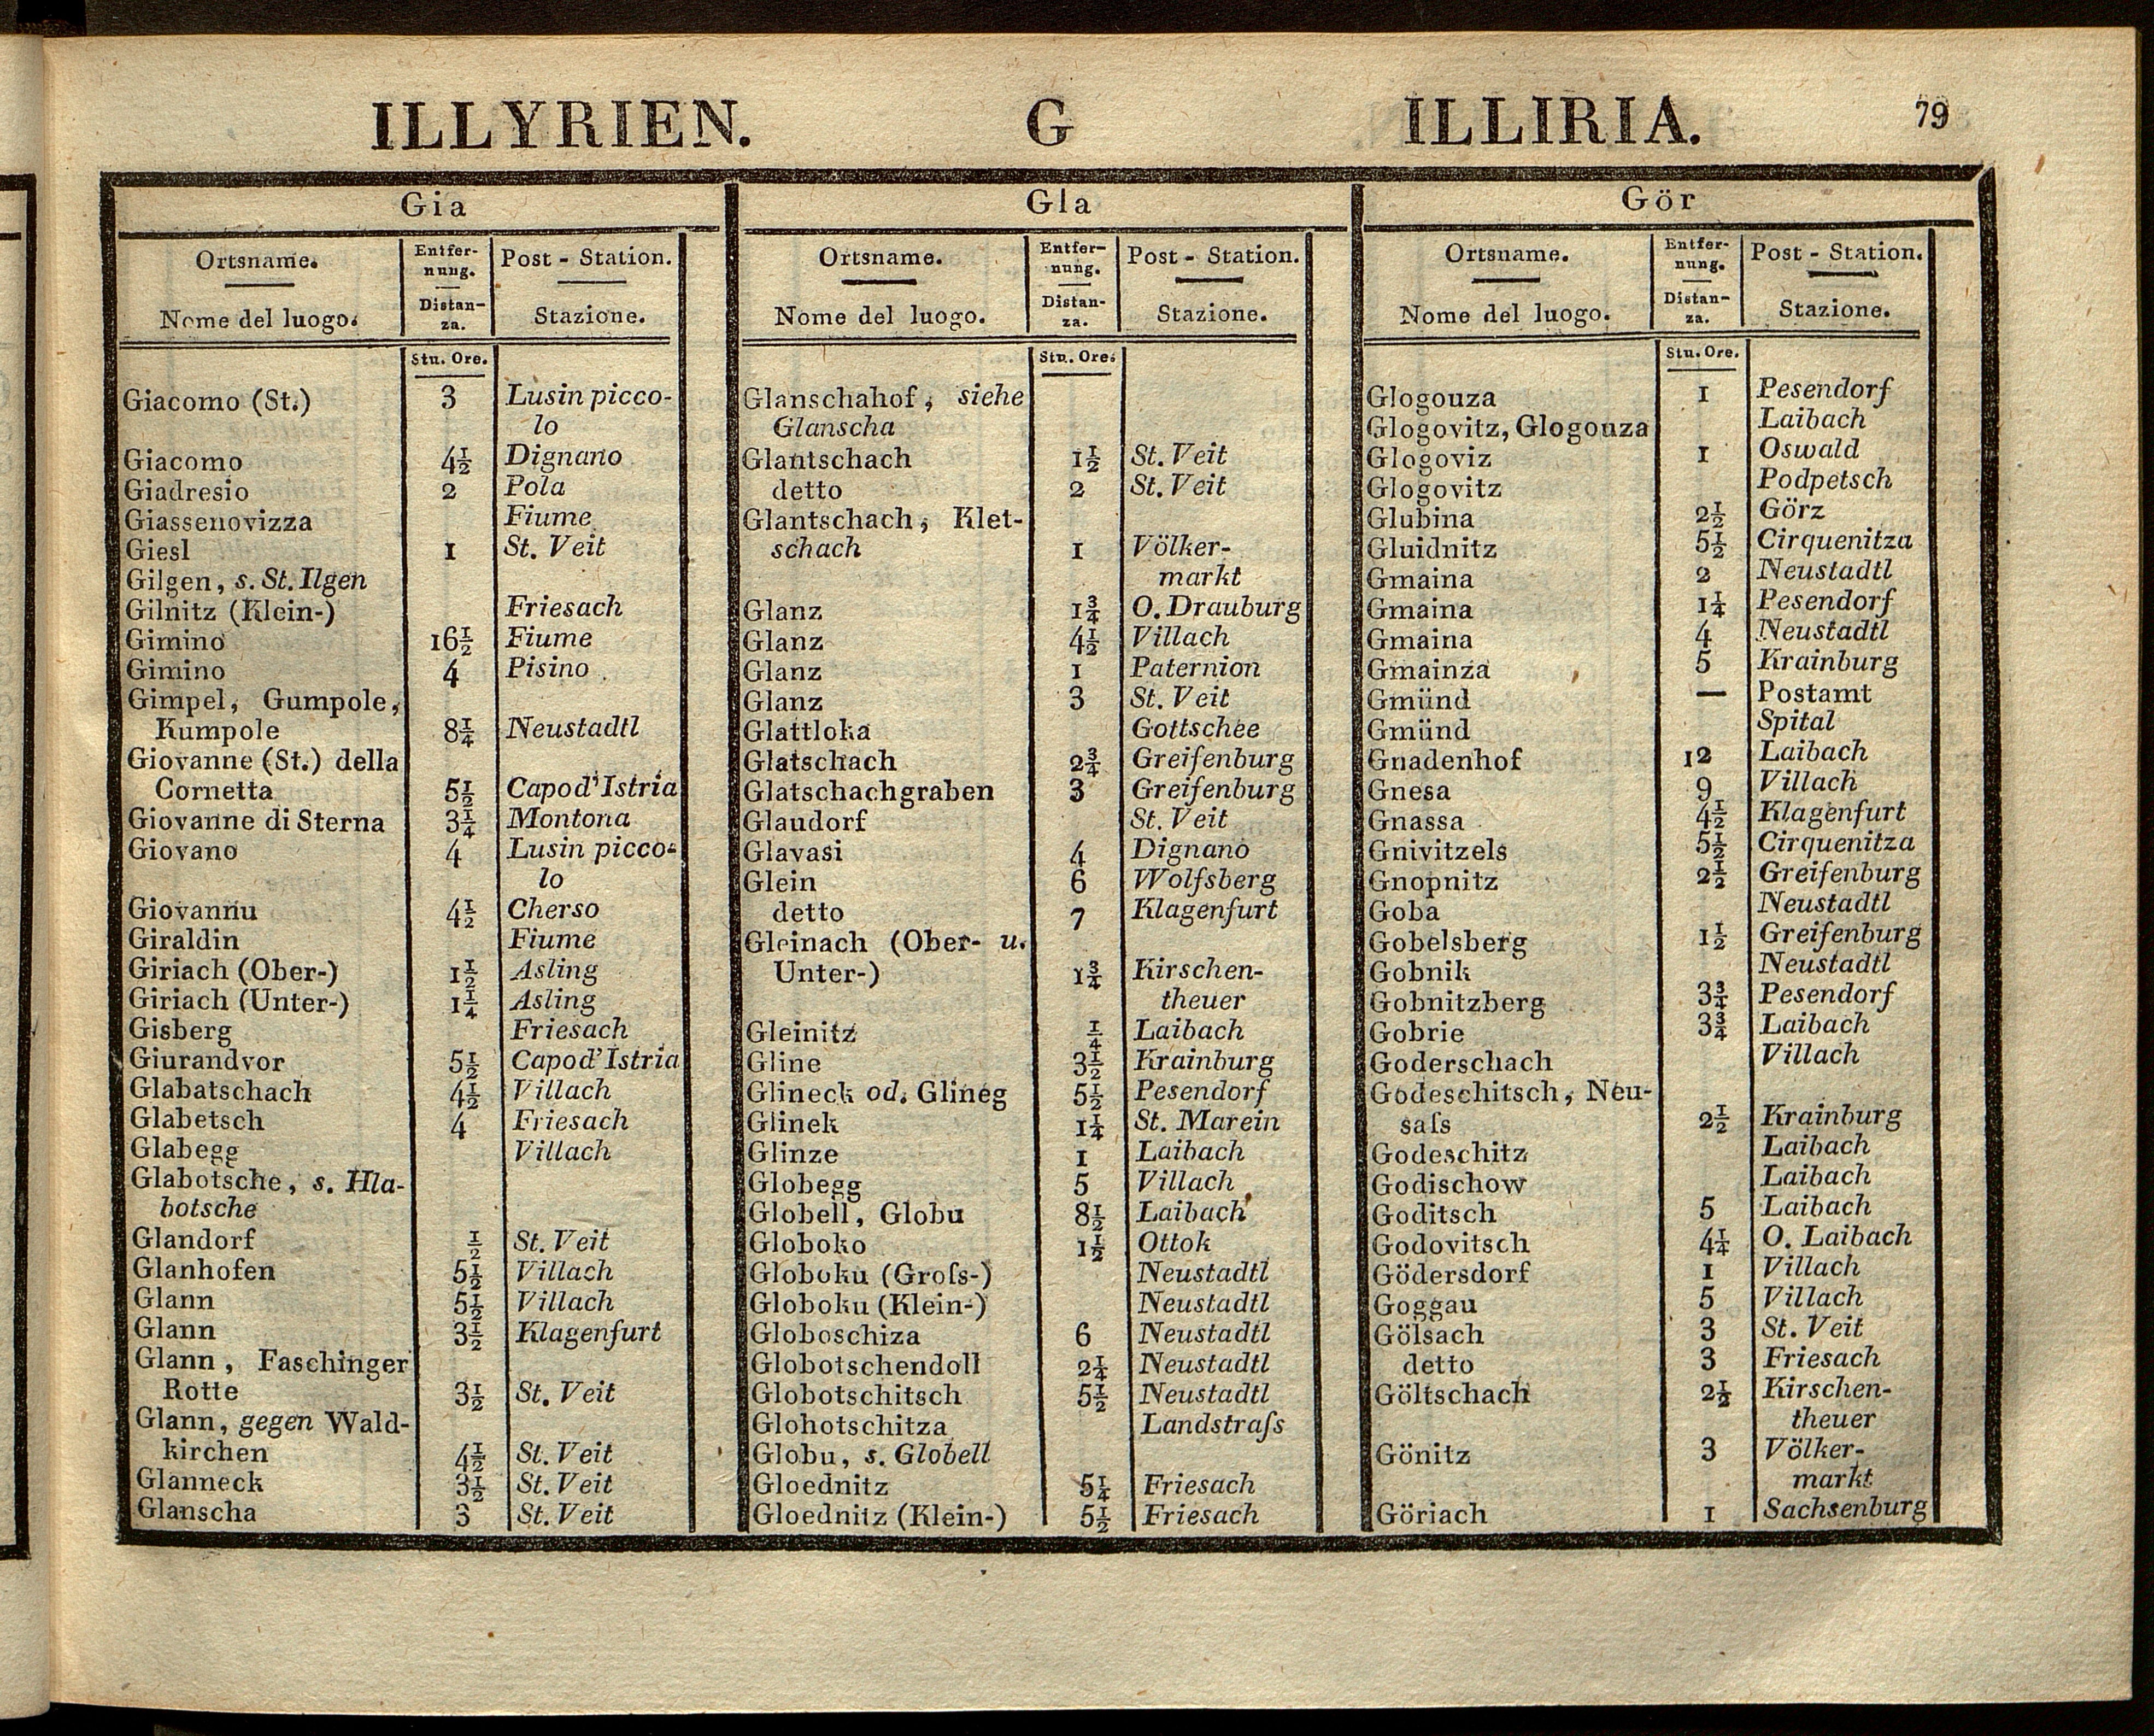 ILLYRIEN. G ILLIRIA. 79
Gia
Ortsname. Entfernung. Post - Station.
Nome del luogo. Distanza. Stazione.
Stu. Ore.
Giacomo (St.) 3 Lusin picco-
lo
Giacomo 4½ Dignano
Giadresio 2 Pola
Giassenovizza Fiume
Giesl 1 St. Veit
Gilgen, s. St. Ilgen
Gilnitz (Klein-) Friesach
Gimino 16½ Fiume
Gimino 4 Pisino
Gimpel, Gumpole,
Kumpole 8¼ Neustadtl
Giovanne (St.) della
Cornetta 5½ Capod'Istria
Giovanne di Sterna 3¼ Montona
Giovano 4 Lusin picco-
lo
Giovannu 4½ Cherso
Giraldin Fiume
Giriach (Ober-) 1½ Asling
Giriach (Unter-) 1¼ Asling
Gisberg Friesach
Giurandvor 5½ Capod'Istria
Glabatschach 4½ Villach
Glabetsch 4 Friesach
Glabegg Villach
Glabotsche, s. Hla-
botsche
Glandorf ½ St. Veit
Glanhofen 5½ Villach
Glann 5½ Villach
Glann 3½ Klagenfurt
Glann, Faschinger
Rotte 3½ St. Veit
Glann, gegen Wald-
kirchen 4½ St. Veit
Glanneck 3½ St. Veit
Glanscha 3 St. Veit
Gla
Ortsname. Entfer-
nung. Post - Station.
Nome del luogo. Distan-
za. Stazione.
Stu. Ore.
Glanschahof, siehe
Glanscha
Glantschach 1½ St. Veit
detto 2 St. Veit
Glantschach, Klet-
schach 1 Völker-
markt
Glanz 1¾ O. Drauburg
Glanz 4½ Villach
Glanz 1 Paternion
Glanz 3 St. Veit
Glattloka Gottschee
Glatschach 2¾ Greifenburg
Glatschachgraben 3 Greifenburg
Glaudorf St. Veit
Glavasi 4 Dignano
Glein 6 Wolfsberg
detto 7 Klagenfurt
Gleinach (Ober- u.
Unter-) 1¾ Kirschen-
theuer
Gleinitz ¼ Laibach
Gline 3½ Krainburg
Glineck od. Glineg 5½ Pesendorf
Glinek 1¼ St. Marein
Glinze 1 Laibach
Globegg 5 Villach
Globell, Globu 8½ Laibach
Globoko 1½ Ottok
Globoku (Groſs-) Neustadtl
Globoku (Klein-) Neustadtl
Globoschiza 6 Neustadtl
Globotschendoll 2¼ Neustadtl
Globotschitsch 5½ Neustadtl
Glohotschitza Landstraſs
Globu, s. Globell
Gloednitz 5¼ Friesach
Gloednitz (Klein-) 5½ Friesach
Gör
Ortsname. Entfer-
nung. Post - Station.
Nome del luogo. Distan-
za. Stazione.
Stu. Ore.
Glogouza 1 Pesendorf
Glogovitz, Glogouza Laibach
Glogoviz 1 Oswald
Glogovitz Podpetsch
Glubina 2½ Görz
Gluidnitz 5½ Cirquenitza
Gmaina 2 Neustadtl
Gmaina 1¼ Pesendorf
Gmaina 4 Neustadtl
Gmainza 5 Krainburg
Gmünd — Postamt
Gmünd Spital
Gnadenhof 12 Laibach
Gnesa 9 Villach
Gnassa 4½ Klagenfurt
Gnivitzels 5½ Cirquenitza
Gnopnitz 2½ Greifenburg
Goba Neustadtl
Gobelsberg 1½ Greifenburg
Gobnik Neustadtl
Gobnitzberg 3¾ Pesendorf
Gobrie 3¾ Laibach
Goderschach Villach
Godeschitsch, Neu-
saſs 2½ Krainburg
Godeschitz Laibach
Godischow Laibach
Goditsch 5 Laibach
Godovitsch 4¼ O. Laibach
Gödersdorf 1 Villach
Goggau 5 Villach
Gölsach 3 St. Veit
detto 3 Friesach
Göltschach 2½ Kirschen-
theuer
Gönitz 3 Völker-
markt
Göriach 1 Sachsenburg